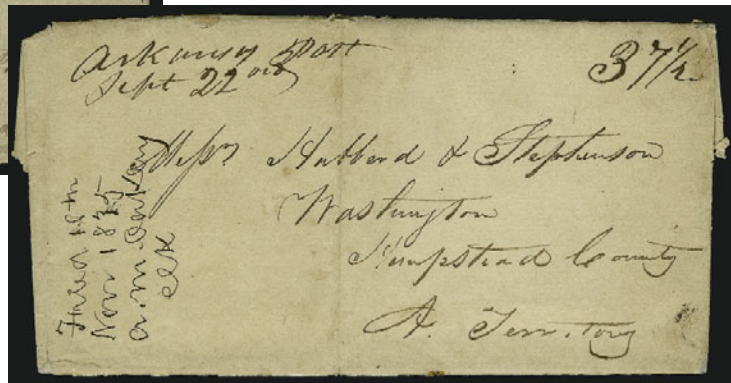 Arkansas Post
Sept 22nd
37 1/2
Messrs Hubbard & Stephenson
Washington
Hempstead County
A. Territory
Filed 18th
Nov 1835
A. M.
clk